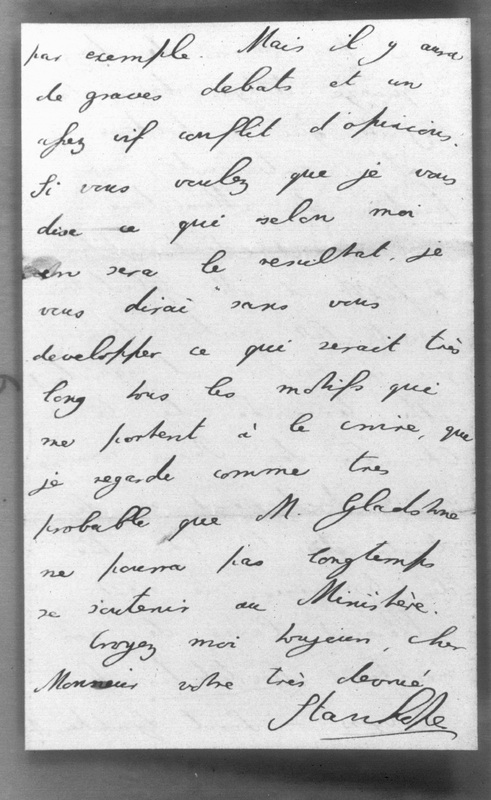 par exemple. Mais il y aura
de graves debats et un
assez vif conflit d'opinions.
Si vous voulez que je vous
dise ce qui selon moi
en sera le resultat, je
vous dirai sans vous
developper ce qui serait très
long tous les motifs qui
me portent à le croire, que
je regarde comme tres
probable que M. Gladstone
ne pourra pas longtemps
se soutenir au Ministère.
Croyez moi toujours, cher
Monsieur votre très devoué
Stanhope